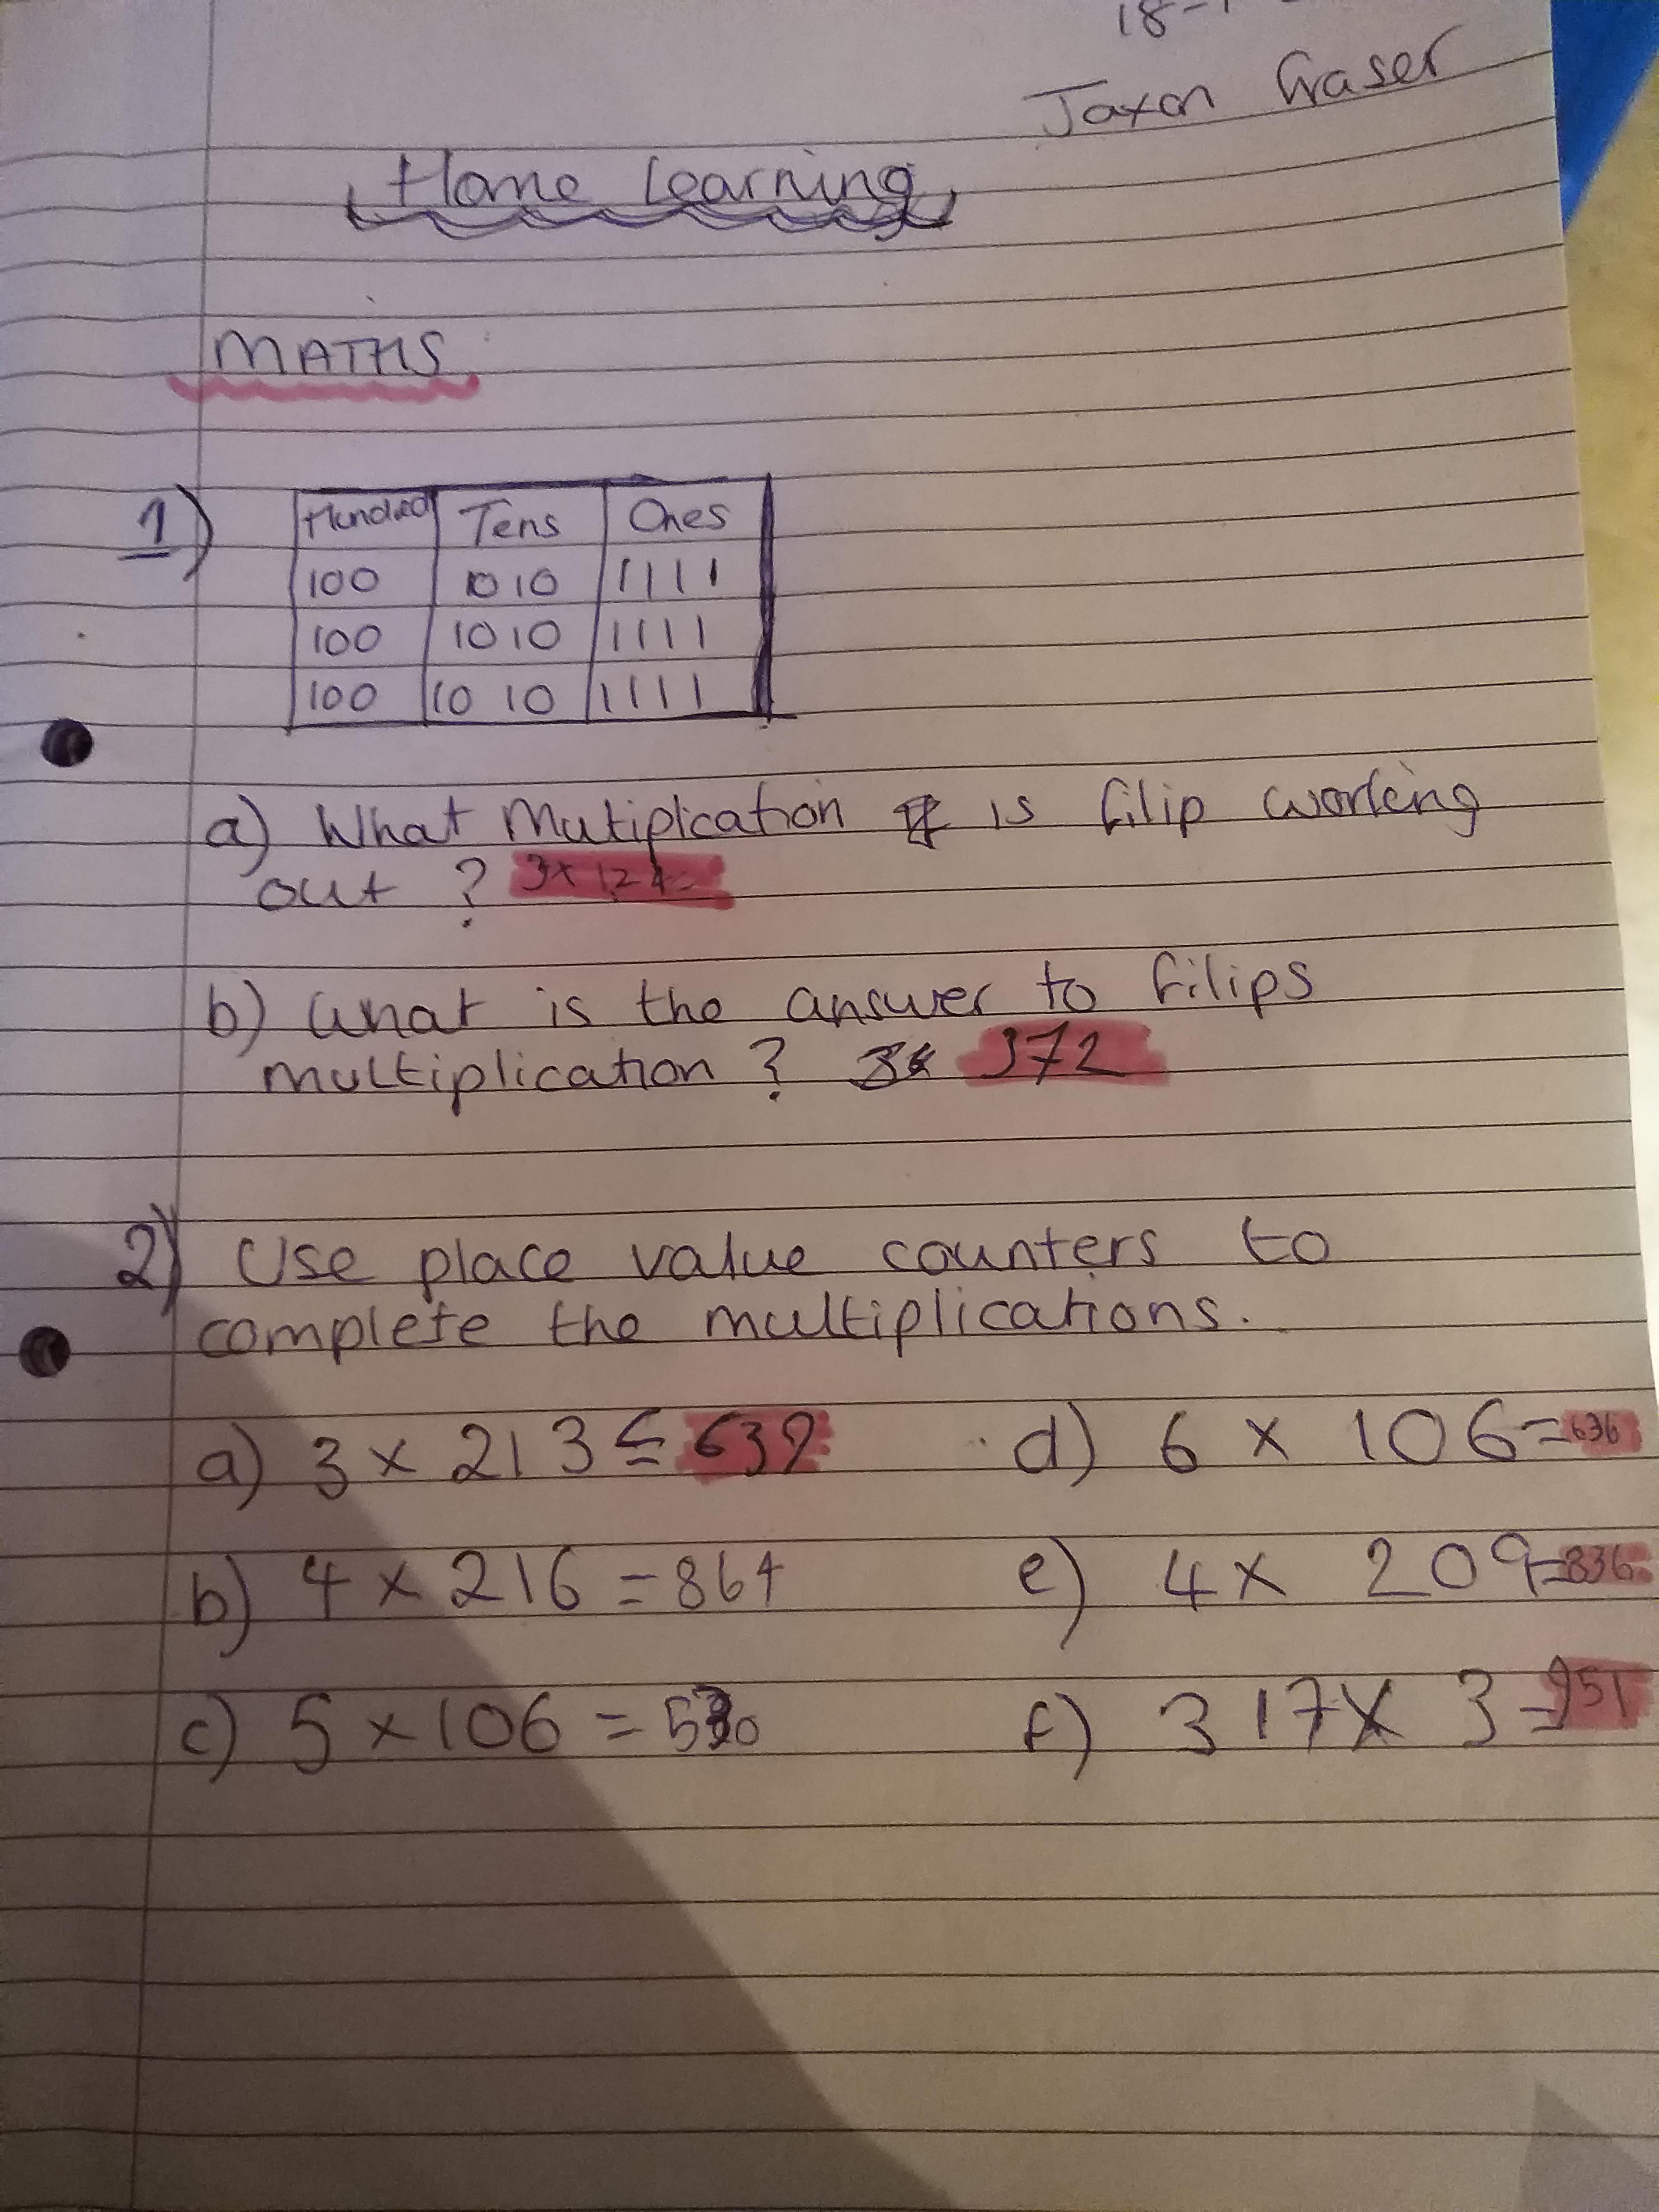 18-1
Jaxon Fraser
Home Learning
MATHS
1)
Hundred Tens Ones
100 10 10 1 1 1 1
100 10 10 1 1 1 1
100 10 10 1 1 1 1
a) What Mutiplication is filip working
out ? 3x 124=
b) What is the answer to filips
multiplication ? 372
2) Use place value counters to
complete the multiplications.
a) 3 x 213 = 639 d) 6 x 106 = 636
b) 4 x 216 = 864 e) 4 x 209 = 836
c) 5 x 106 = 530 f) 317 x 3 = 951